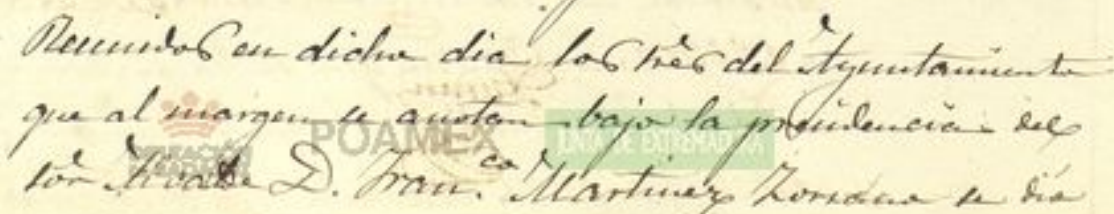 Reunidos en dicho dia los Sres del Ayuntamiento
que al margen se anotan bajo la presidencia del
Sor Alcalde D. Fran.co Martinez se dio
POAMEX
JUNTA DE EXTREMADURA